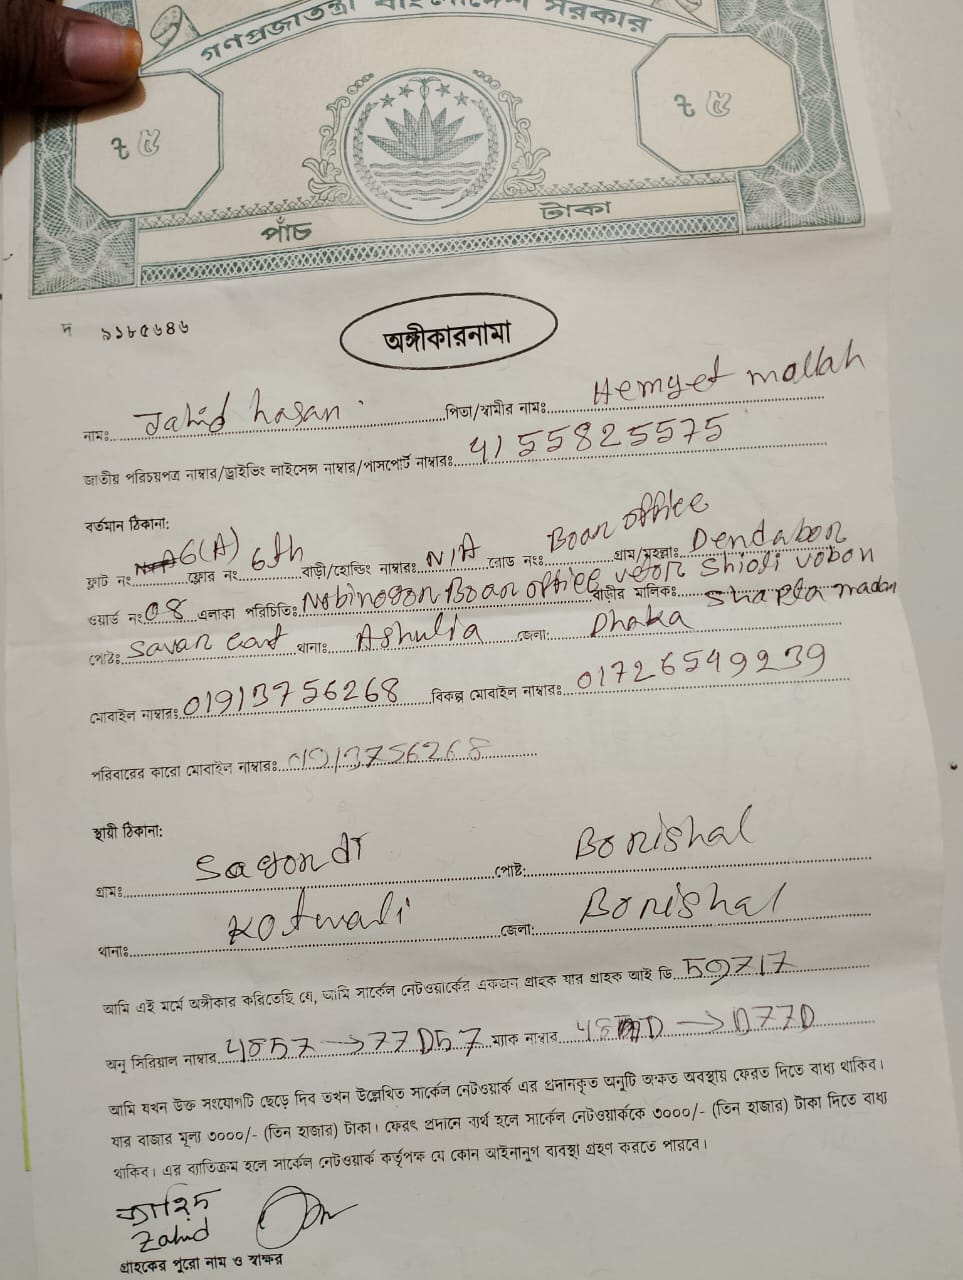 গণপ্রজাতন্ত্রী বাংলাদেশ সরকার
৳ ৫ ৳ ৫
পাঁচ টাকা
দ ৯১৮৫৬৪৬
অঙ্গীকারনামা
নামঃ Jahid hasan পিতা/স্বামীর নামঃ Hemyet mallah
জাতীয় পরিচয়পত্র নাম্বার/ড্রাইভিং লাইসেন্স নাম্বার/পাসপোর্ট নাম্বারঃ 4155825575
বর্তমান ঠিকানা:
ফ্লাট নং 6(A) ফ্লোর নং 6th বাড়ী/হোল্ডিং নাম্বারঃ N/A রোড নংঃ Boan office গ্রাম/মহল্লাঃ Dendabon
ওয়ার্ড নং 08 এলাকা পরিচিতিঃ Nobinogon Boan office বাড়ীর মালিকঃ Shioli vobon
পোষ্টঃ Savar থানাঃ Ashulia জেলা: Dhaka
মোবাইল নাম্বারঃ 01913756268 বিকল্প মোবাইল নাম্বারঃ 01726549239
পরিবারের কারো মোবাইল নাম্বারঃ 01913756268
স্থায়ী ঠিকানা:
গ্রামঃ Sagordi পোষ্ট: Borishal
থানাঃ Kotwali জেলা: Borishal
আমি এই মর্মে অঙ্গীকার করিতেছি যে, আমি সার্কেল নেটওয়ার্কের একজন গ্রাহক যার গ্রাহক আই ডি 59717
অনু সিরিয়াল নাম্বার ম্যাক নাম্বার
আমি যখন উক্ত সংযোগটি ছেড়ে দিব তখন উল্লেখিত সার্কেল নেটওয়ার্ক এর প্রদানকৃত অনুটি অক্ষত অবস্থায় ফেরত দিতে বাধ্য থাকিব।
যার বাজার মূল্য ৩০০০/- (তিন হাজার) টাকা। ফেরৎ প্রদানে ব্যর্থ হলে সার্কেল নেটওয়ার্ককে ৩০০০/- (তিন হাজার) টাকা দিতে বাধ্য
থাকিব। এর ব্যতিক্রম হলে সার্কেল নেটওয়ার্ক কর্তৃপক্ষ যে কোন আইনানুগ ব্যবস্থা গ্রহণ করতে পারবে।
জাহিদ
Zahid
গ্রাহকের পুরো নাম ও স্বাক্ষর